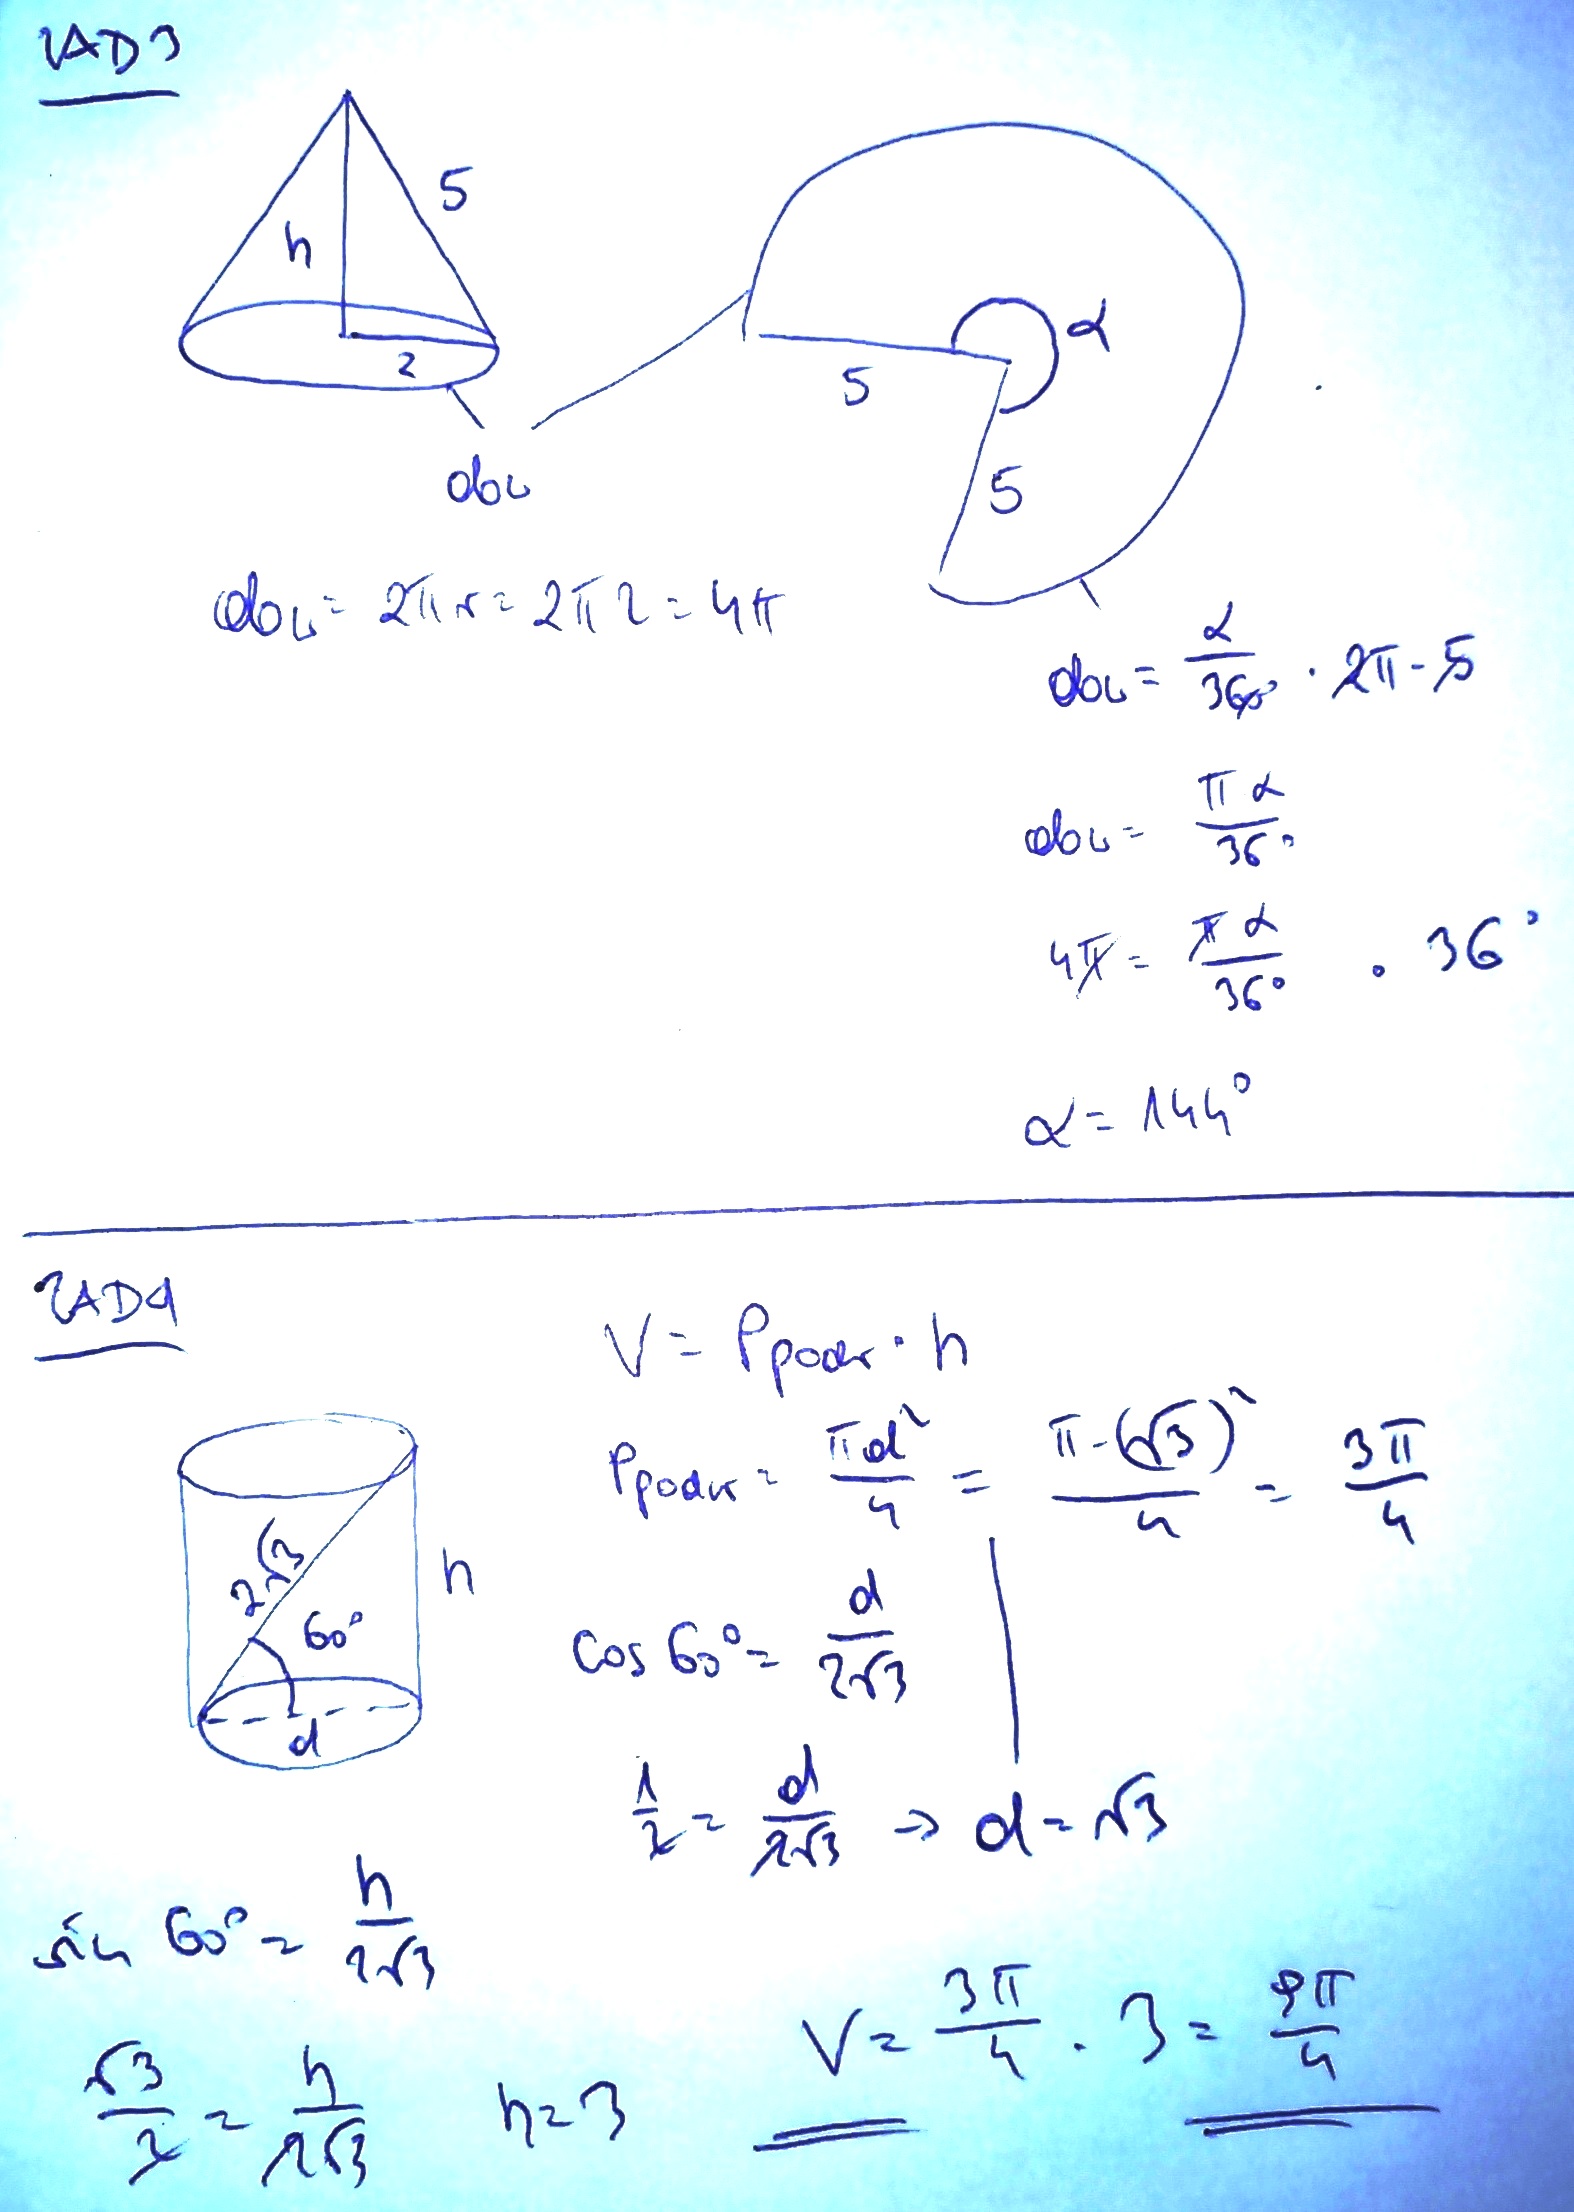 ZAD3
5
h
2
α
5
5
obw
obw = 2πr = 2π2 = 4π
obw = α/360° · 2π · 5
obw = πα/36°
4π = πα/36° · 36°
α = 144°
ZAD4
V = Ppodst · h
Ppodst = πd²/4 = π·(√3)²/4 = 3π/4
2√3
h
60°
d
cos 60° = d/2√3
1/2 = d/2√3 → d = √3
sin 60° = h/2√3
√3/2 = h/2√3 h = 3
V = 3π/4 · 3 = 9π/4